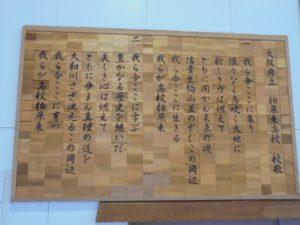 大阪府立 柏原東高校 校歌
一
我ら今ここに集う
限りなく息吹く大地に
新しき力は燃えて
ともに開かん未来の道
信貴生駒山道のぞむこの岡辺
我ら今ここに生きる
我らが高校柏原東
二
我ら今ここに学ぶ
豊かなる歴史を継いだ
美しき心は燃えて
ともに歩まん真理の道を
大和川しぶき波光るこの岡辺
我ら今ここに育つ
我らが高校柏原東